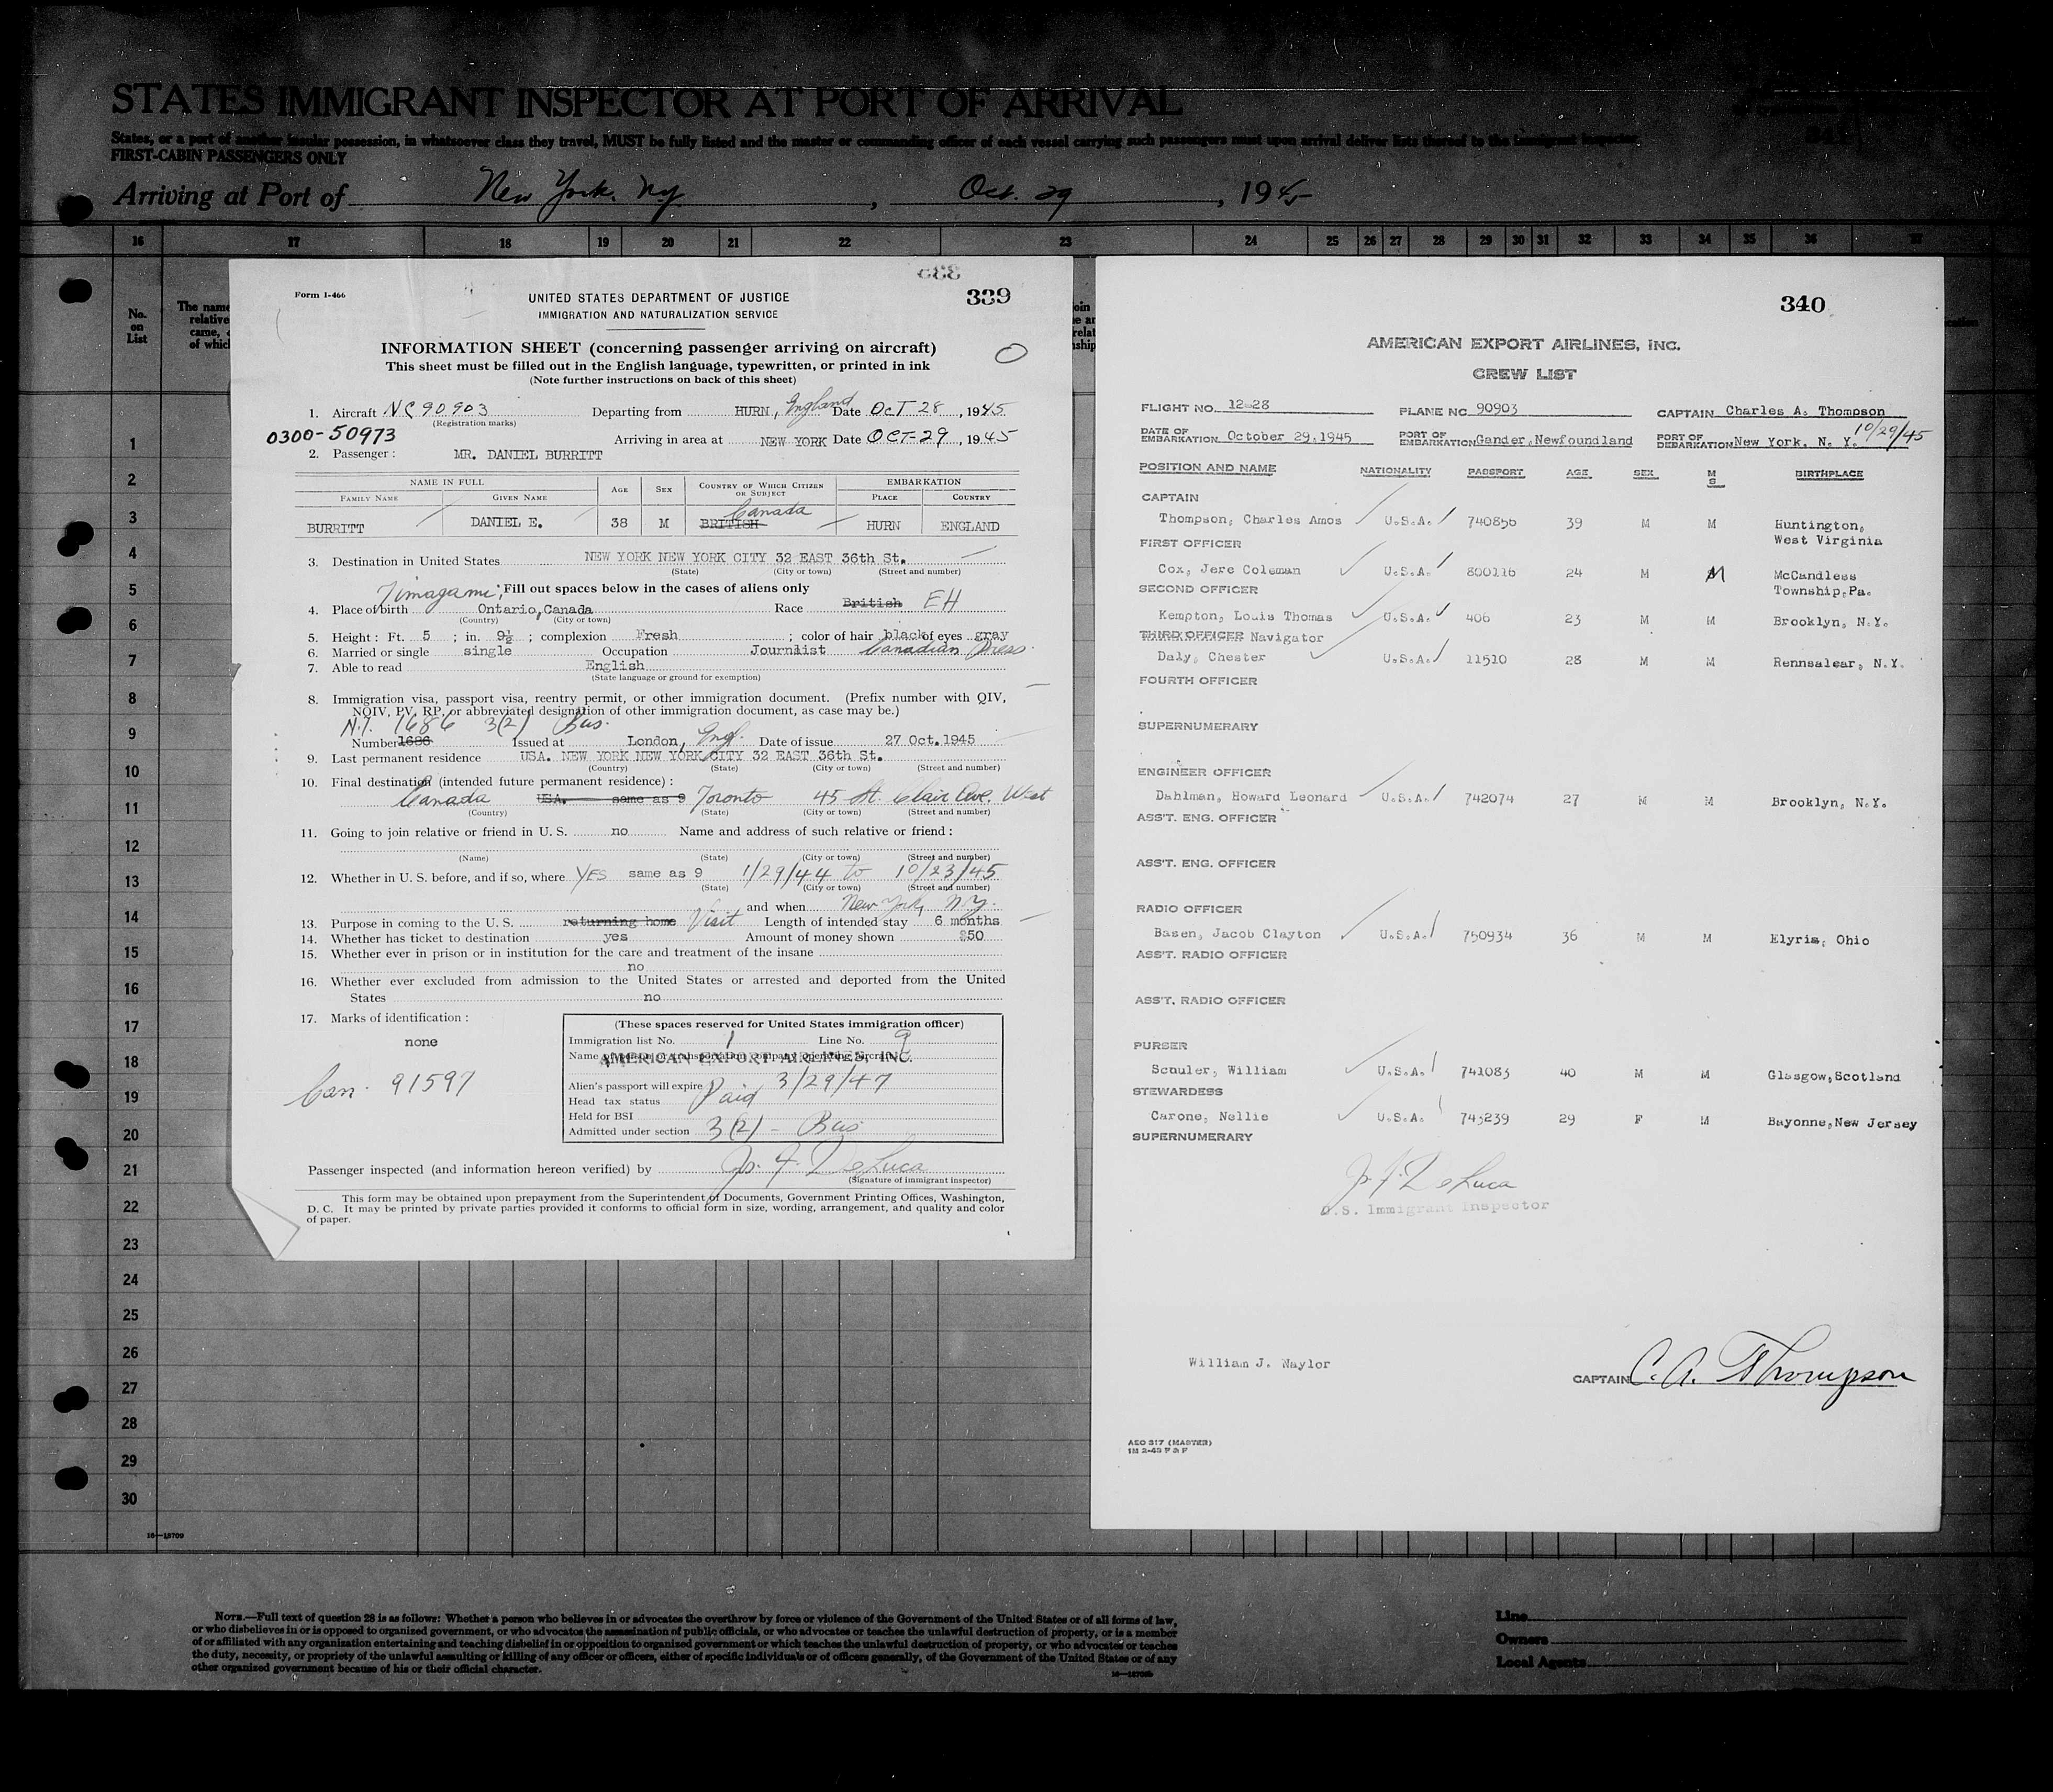 STATES IMMIGRANT INSPECTOR AT PORT OF ARRIVAL
States, or a port of another insular possession, in whatsoever class they travel, MUST be fully listed and the master or commanding officer of each vessel carrying such passengers must upon arrival deliver lists thereof to the immigrant inspector.
FIRST-CABIN PASSENGERS ONLY
Arriving at Port of New York, N.Y., Oct. 29, 1945
16 17 18 19 20 21 22 23 24 25 26 27 28 29 30 31 32 33 34 35 36 37
No. on List
The name
relative
came,
of which
1
2
3
4
5
6
7
8
9
10
11
12
13
14
15
16
17
18
19
20
21
22
23
24
25
26
27
28
29
30
16—18709
339
Form I-466
UNITED STATES DEPARTMENT OF JUSTICE
IMMIGRATION AND NATURALIZATION SERVICE
INFORMATION SHEET (concerning passenger arriving on aircraft)
O
This sheet must be filled out in the English language, typewritten, or printed in ink
(Note further instructions on back of this sheet)
1. Aircraft NC 90903 Departing from HURN, England Date OCT 28, 1945
(Registration marks)
0300-50973 Arriving in area at NEW YORK Date OCT-29, 1945
2. Passenger: MR. DANIEL BURRITT
NAME IN FULL AGE SEX COUNTRY OF WHICH CITIZEN OR SUBJECT EMBARKATION
FAMILY NAME GIVEN NAME PLACE COUNTRY
Canada
BURRITT DANIEL E. 38 M BRITISH HURN ENGLAND
3. Destination in United States NEW YORK NEW YORK CITY 32 EAST 36th St.
(State) (City or town) (Street and number)
Timagami, Fill out spaces below in the cases of aliens only
4. Place of birth Ontario, Canada Race British EH
(Country) (City or town)
5. Height: Ft. 5; in. 9½; complexion Fresh; color of hair black of eyes gray
6. Married or single single Occupation Journlist Canadian Press
7. Able to read English
(State language or ground for exemption)
8. Immigration visa, passport visa, reentry permit, or other immigration document. (Prefix number with QIV,
NQIV, PV, RP, or abbreviated designation of other immigration document, as case may be.)
N.I. 1686 3(2) Bus.
Number 1686 Issued at London, Eng. Date of issue 27 Oct. 1945
9. Last permanent residence USA. NEW YORK NEW YORK CITY 32 EAST 36th St.
(Country) (State) (City or town) (Street and number)
10. Final destination (intended future permanent residence):
Canada USA. same as 9 Toronto 45 St. Clair Ave. West
(Country) (State) (City or town) (Street and number)
11. Going to join relative or friend in U. S. no Name and address of such relative or friend:
(Name) (State) (City or town) (Street and number)
12. Whether in U. S. before, and if so, where YES same as 9 1/29/44 to 10/23/45
(State) (City or town) (Street and number)
and when New York, N.Y.
13. Purpose in coming to the U. S. returning home Visit Length of intended stay 6 months
14. Whether has ticket to destination yes Amount of money shown $50
15. Whether ever in prison or in institution for the care and treatment of the insane
no
16. Whether ever excluded from admission to the United States or arrested and deported from the United
States no
17. Marks of identification:
none
Can. 91597
(These spaces reserved for United States immigration officer)
Immigration list No. 1 Line No. 9
AMERICAN EXPORT AIRLINES, INC.
Alien's passport will expire 3/29/47
Head tax status Paid
Held for BSI
Admitted under section 3(2) - Bus
Passenger inspected (and information hereon verified) by Js. F. DeLuca
(Signature of immigrant inspector)
This form may be obtained upon prepayment from the Superintendent of Documents, Government Printing Offices, Washington,
D. C. It may be printed by private parties provided it conforms to official form in size, wording, arrangement, and quality and color
of paper.
340
AMERICAN EXPORT AIRLINES, INC.
CREW LIST
FLIGHT NO. 12-28 PLANE NO. 90903 CAPTAIN Charles A. Thompson
DATE OF EMBARKATION October 29, 1945 PORT OF EMBARKATION Gander, Newfoundland PORT OF DEBARKATION New York, N. Y. 10/29/45
POSITION AND NAME NATIONALITY PASSPORT AGE SEX M S BIRTHPLACE
CAPTAIN
Thompson, Charles Amos U.S.A. 740856 39 M M Huntington, West Virginia
FIRST OFFICER
Cox, Jere Coleman U.S.A. 800116 24 M M McCandless Township, Pa.
SECOND OFFICER
Kempton, Louis Thomas U.S.A. 406 23 M M Brooklyn, N.Y.
THIRD OFFICER Navigator
Daly, Chester U.S.A. 11510 28 M M Rennsalear, N.Y.
FOURTH OFFICER
SUPERNUMERARY
ENGINEER OFFICER
Dahlman, Howard Leonard U.S.A. 742074 27 M M Brooklyn, N.Y.
ASS'T. ENG. OFFICER
ASS'T. ENG. OFFICER
RADIO OFFICER
Basen, Jacob Clayton U.S.A. 750934 36 M M Elyria, Ohio
ASS'T. RADIO OFFICER
ASS'T. RADIO OFFICER
PURSER
Schuler, William U.S.A. 741083 40 M M Glasgow, Scotland
STEWARDESS
Carone, Nellie U.S.A. 743239 29 F M Bayonne, New Jersey
SUPERNUMERARY
Js. F. DeLuca
U.S. Immigrant Inspector
William J. Naylor
CAPTAIN C. A. Thompson
AEO 317 (MASTER)
1M 2-45 P & P
NOTE.—Full text of question 28 is as follows: Whether a person who believes in or advocates the overthrow by force or violence of the Government of the United States or of all forms of law,
or who disbelieves in or is opposed to organized government, or who advocates the assassination of public officials, or who advocates or teaches the unlawful destruction of property, or is a member
of or affiliated with any organization entertaining and teaching disbelief in or opposition to organized government or which teaches the unlawful destruction of property, or who advocates or teaches
the duty, necessity, or propriety of the unlawful assaulting or killing of any officer or officers, either of specific individuals or of officers generally, of the Government of the United States or of any
other organized government because of his or their official character.
Line
Owners
Local Agents